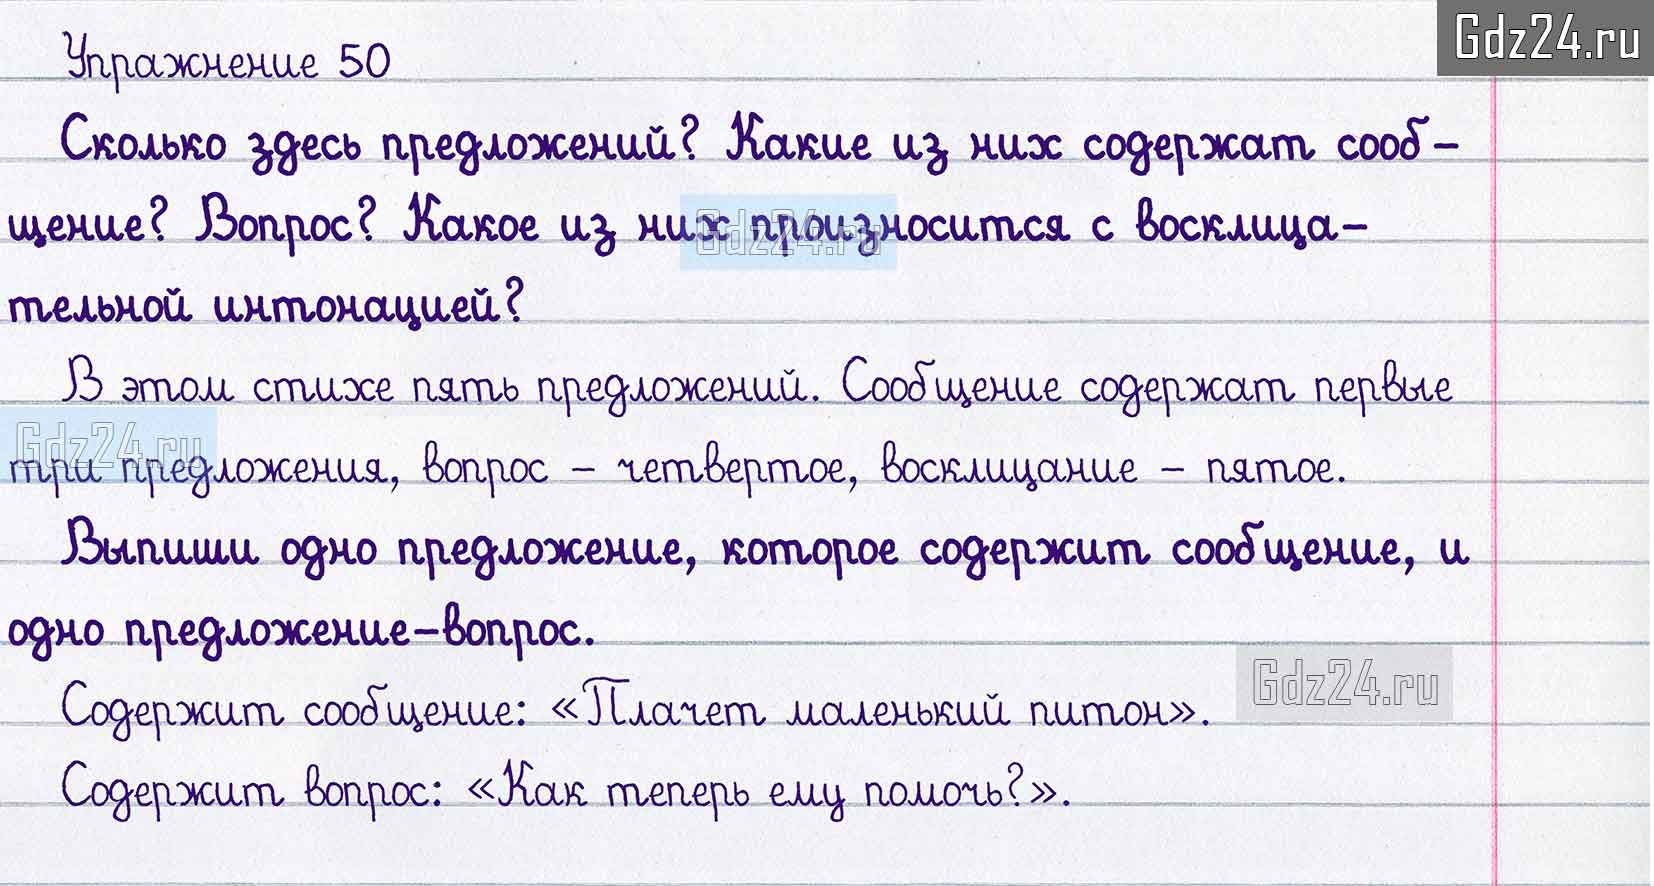 Gdz24.ru
Упражнение 50
Сколько здесь предложений? Какие из них содержат сооб-
щение? Вопрос? Какое из них произносится с восклица-
Gdz24.ru
тельной интонацией?
В этом стихе пять предложений. Сообщение содержат первые
Gdz24.ru
три предложения, вопрос – четвертое, восклицание – пятое.
Выпиши одно предложение, которое содержит сообщение, и
одно предложение-вопрос.
Gdz24.ru
Содержит сообщение: «Плачет маленький питон».
Содержит вопрос: «Как теперь ему помочь?».